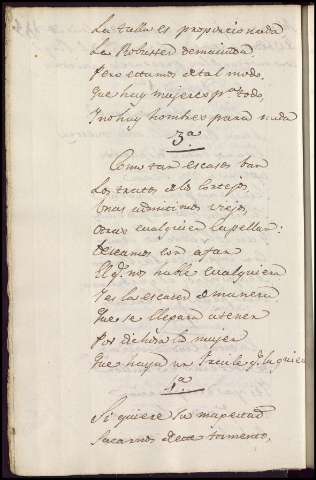 La talla es proporcionada
La Robustez demasiada
Pero estamos de tal modo,
Que hay mujeres pa todo,
Y no hay hombres para nada
3.a
Como tan escasos van
Los tratos de los Cortejos,
Unas admitimos viejos,
otras cualquier Capellan:
Deseamos con afan
El q.e nos hable cualquiera
Y es la escasez de manera
Que se llegara a tener
Por dichosa la mujer
Que haya un q.e la quiera
4.a
Si quiere Su magestad
Sacarnos de este tormento,